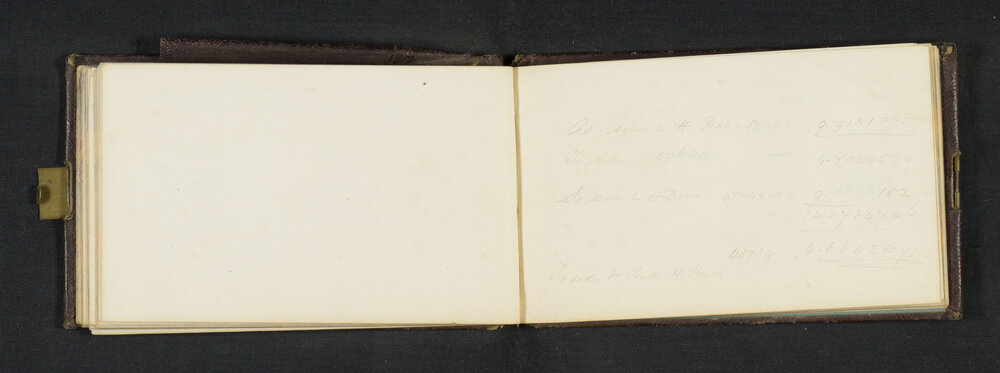 As sine L H Peak 9.9131875
To side 50636 — 4.7044594
So sine L H 47-42-0 9.8690152
14.5734746
45739 4.6602871
To side H Peak H Peak